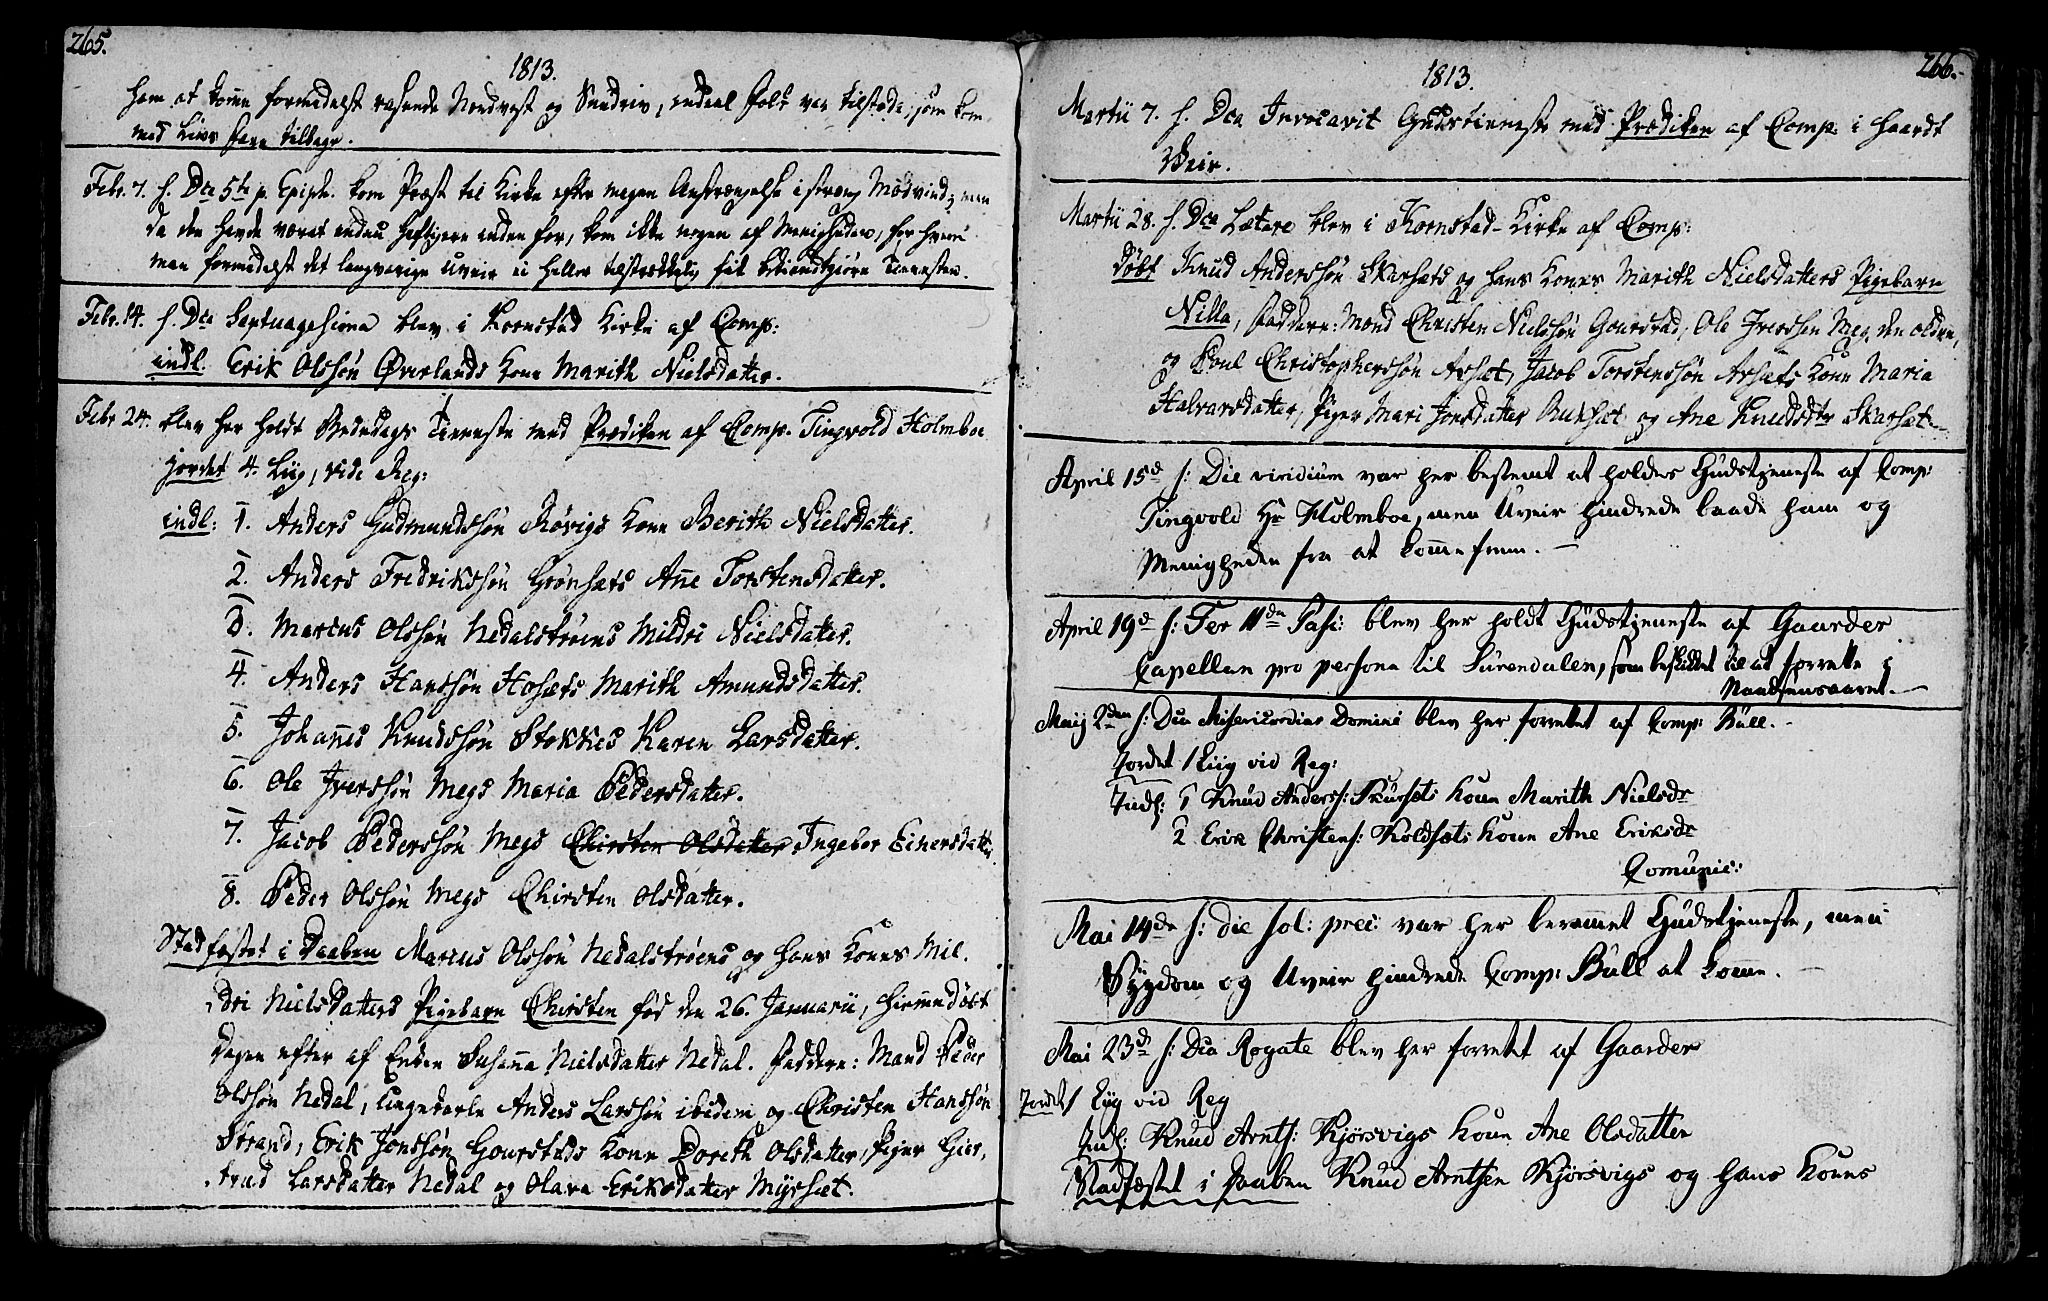 265.
1813.
ham at kom̅e formedelst rasende Nordvest og Sneedriv, endeel Folk var tilstæde, som kom
med Livs Fare tilbage.
Febr. 7. f. Dca 5te p. Epiph. kom Præst til Kirke efter megen Anstrængelse i stræng Modvind; men
da den havde været endnu heftigere inden for, kom ikke nogen af Menigheden, for hvem
man formedelst det langvarige Uveir ei heller tilstrækkelig fik bekiendtgjøre Tienesten.
Febr. 14. f. Dca Septuagesima blev i Kornstad Kirke af Comp:
indl. Erik Olssøn Øverlands Kone Marith Nielsdatter.
Febr 24. blev her holdt Bededags Tieneste med Prædiken af Comp. Tingvold Holmboe
jordet 4. Liig, vide Reg:
indl: 1. Anders Gudmundssøn Røvigs Kone Berith Nielsdatter.
2. Anders Fredrikssøn Grønsets An̅e Torstensdatter.
3. Marcus Olssøn Nedalstrøens Mildri Nielsdatter.
4. Anders Hanssøn Hosæts Marith Amundsdatter.
5. Johan̅es Knudssøn Stokkes Karen Larsdatter.
6. Ole Iverssøn Megs Maria Pedersdatter.
7. Jacob Pederssøn Megs Chirsten Olsdatter Ingebor Einersdatter
8. Peder Olssøn Megs Chirsten Olsdatter.
Stadfæstet i Daaben Marcus Olssøn Nedalstrøens og hans Kones Mil,
dri Nielsdatters Pigebarn Chirsten fød den 26. Januarii, hiem̅edøbt
dagen efter af Enken Susan̅a Nielsdatter Nedal. Faddere: Mand Peder
Olssøn Nedal, Ungekarle Anders Larssøn ibidem og Christen Hanssøn
Strand, Erik Jonssøn Gourstads Kone Doreth Olsdatter, Piger Gier,
trud Larsdatter Nedal og Olava Eriksdatter Myrsæt.
266.
1813.
Martii 7. f. Dca Invocavit Gudstieneste med Prædiken af Comp. i haardt
Veir.
Martii 28. f. Dca Lætare blev i Kornstad-Kirke af Comp:
døbt Knud Anderssøn Skarsæts og hans Kones Marith Nielsdatters Pigebarn
Nille, Faddere: Mænd Christen Nielssøn Gourstad, Ole Iverssøn Meg, den ældre,
og Poul Christopherssøn Arsæt, Jacob Torstenssøn Arsæts Kone Maria
Halvarsdatter, Piger Mari Jonsdatter Buksæt og Ane Knudsdtr Skarsæt.
April 15d f: Die viridium var her bestemt at holdes Gudstjeneste af Comp:
Tingvold Hr Holmboe, men Uveir hindrede baade ham og
Menigheden fra at kom̅e frem.
April 19d f: Fer IIda Pasc: blev her holdt Gudstjeneste af Gaarder
Capellan pro persona til Surendalen, som beskikket til at forrette i
Naadsensaaret.
Maij 2den f: Dca Misericordias Domini blev her forrettet af Comp: Bull.
Jordet 1 Liig vid Reg:
Indl: 1 Knud Anderss: Skarsæts Kone Marith Nielsdr
2 Erik Christens: Koldsæts Kone Ane Eriksdr
Com̅unic:
Mai 14de f: die sol: prec: var her beram̅et Gudstjeneste, men
Sygdom og Uveir hindrede Comp: Bull at kom̅e.
Mai 23d f: Dca Rogate blev her forrettet af Gaarder
Jordet 1 Liig vid Reg
Indl: Knud Arnts: Kjørsvigs Kone Ane Olsdatter
Stadfæstet i Daaben Knud Arntsen Kjørsvigs og hans Kones